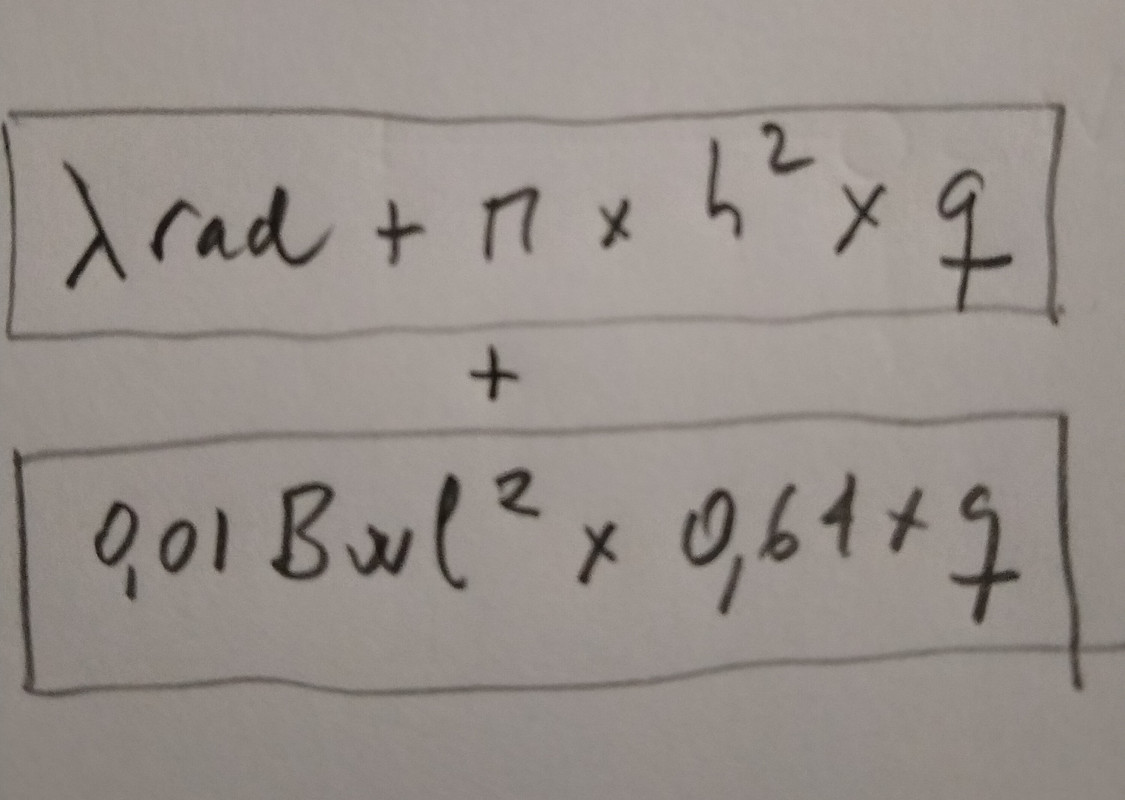 λ rad + π × h² × q
+
0,01 Bwl² × 0,61 × q